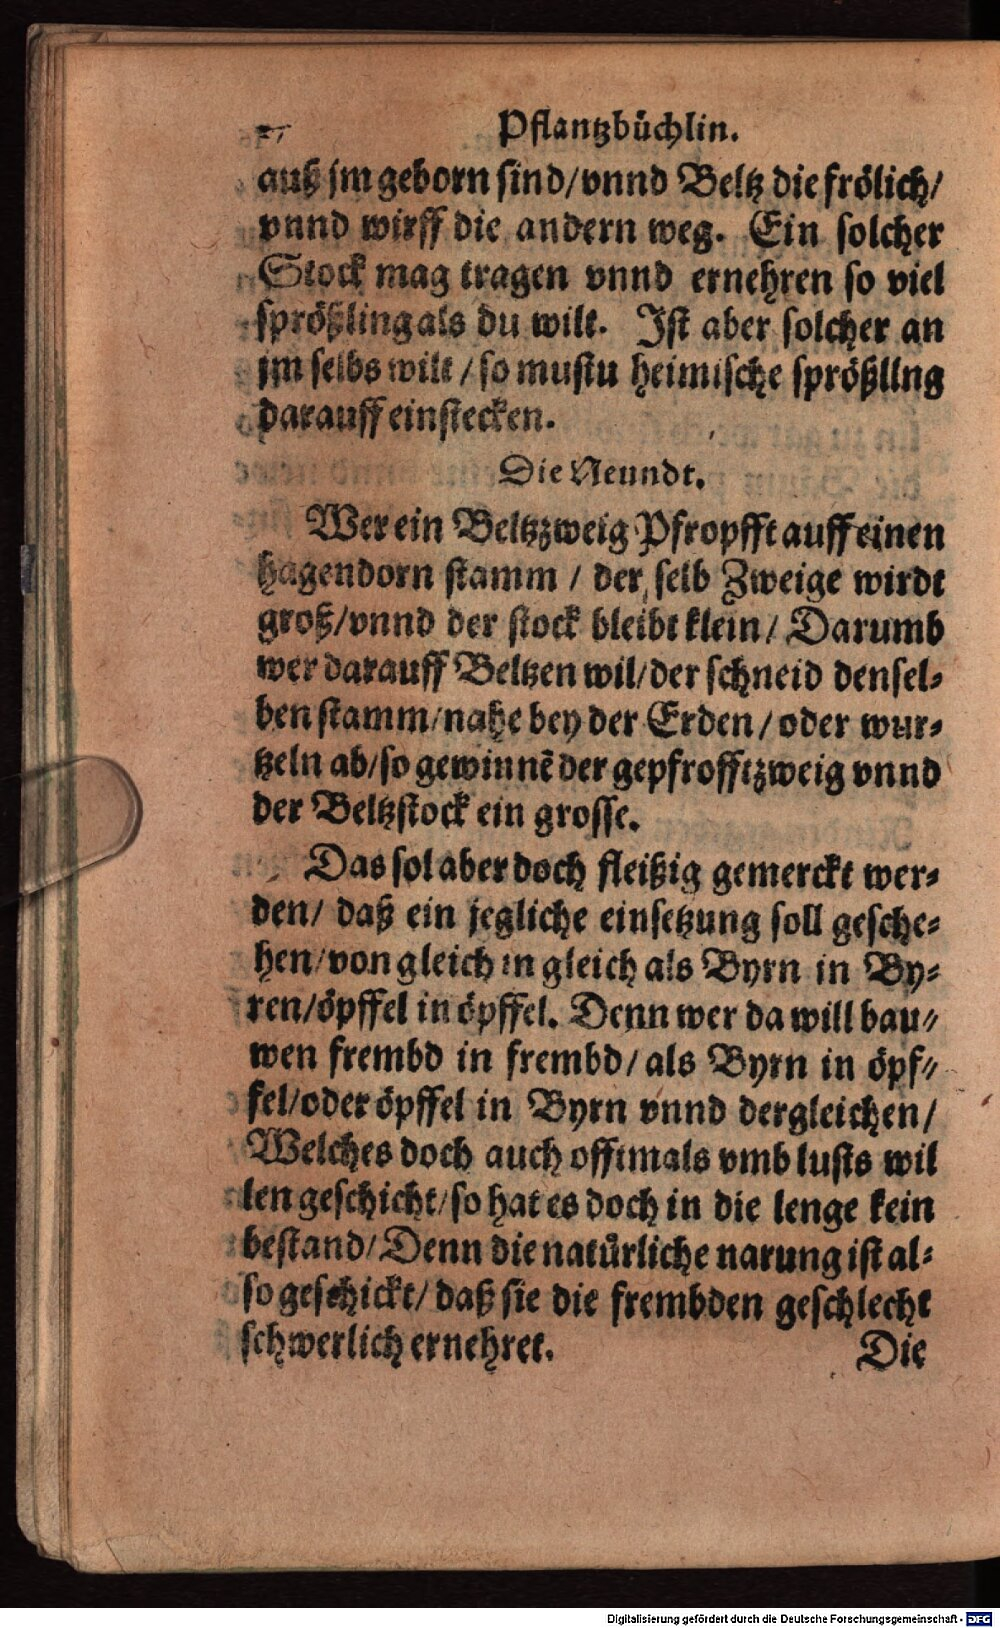 Pflantzbüchlin.
auß jm geborn sind/vnnd Beltz die frölich/
vnnd wirff die andern weg. Ein solcher
Stock mag tragen vnnd ernehren so viel
sprößling als du wilt. Ist aber solcher an
jm selbs wilt/so mustu heimische sprößling
darauff einstecken.
Die Neundt.
Wer ein Beltzzweig Pfropfft auff einen
hagendorn stamm / der selb Zweige wirdt
groß/vnnd der stock bleibt klein/ Darumb
wer darauff Beltzen wil/der schneid densel-
ben stamm/nahe bey der Erden/oder wur-
tzeln ab/so gewinnẽ der gepfrofftzweig vnnd
der Beltzstock ein grosse.
Das sol aber doch fleißig gemerckt wer-
den/ daß ein jegliche einsetzung soll gesche-
hen/von gleich in gleich als Byrn in By-
ren/öpffel in öpffel. Denn wer da will bau-
wen frembd in frembd/als Byrn in öpf-
fel/oder öpffel in Byrn vnnd dergleichen/
Welches doch auch offtmals vmb lusts wil
len geschicht/so hat es doch in die lenge kein
bestand/Denn die natürliche narung ist al-
so geschickt/daß sie die frembden geschlecht
schwerlich ernehret.
Die
Digitalisierung gefördert durch die Deutsche Forschungsgemeinschaft - DFG